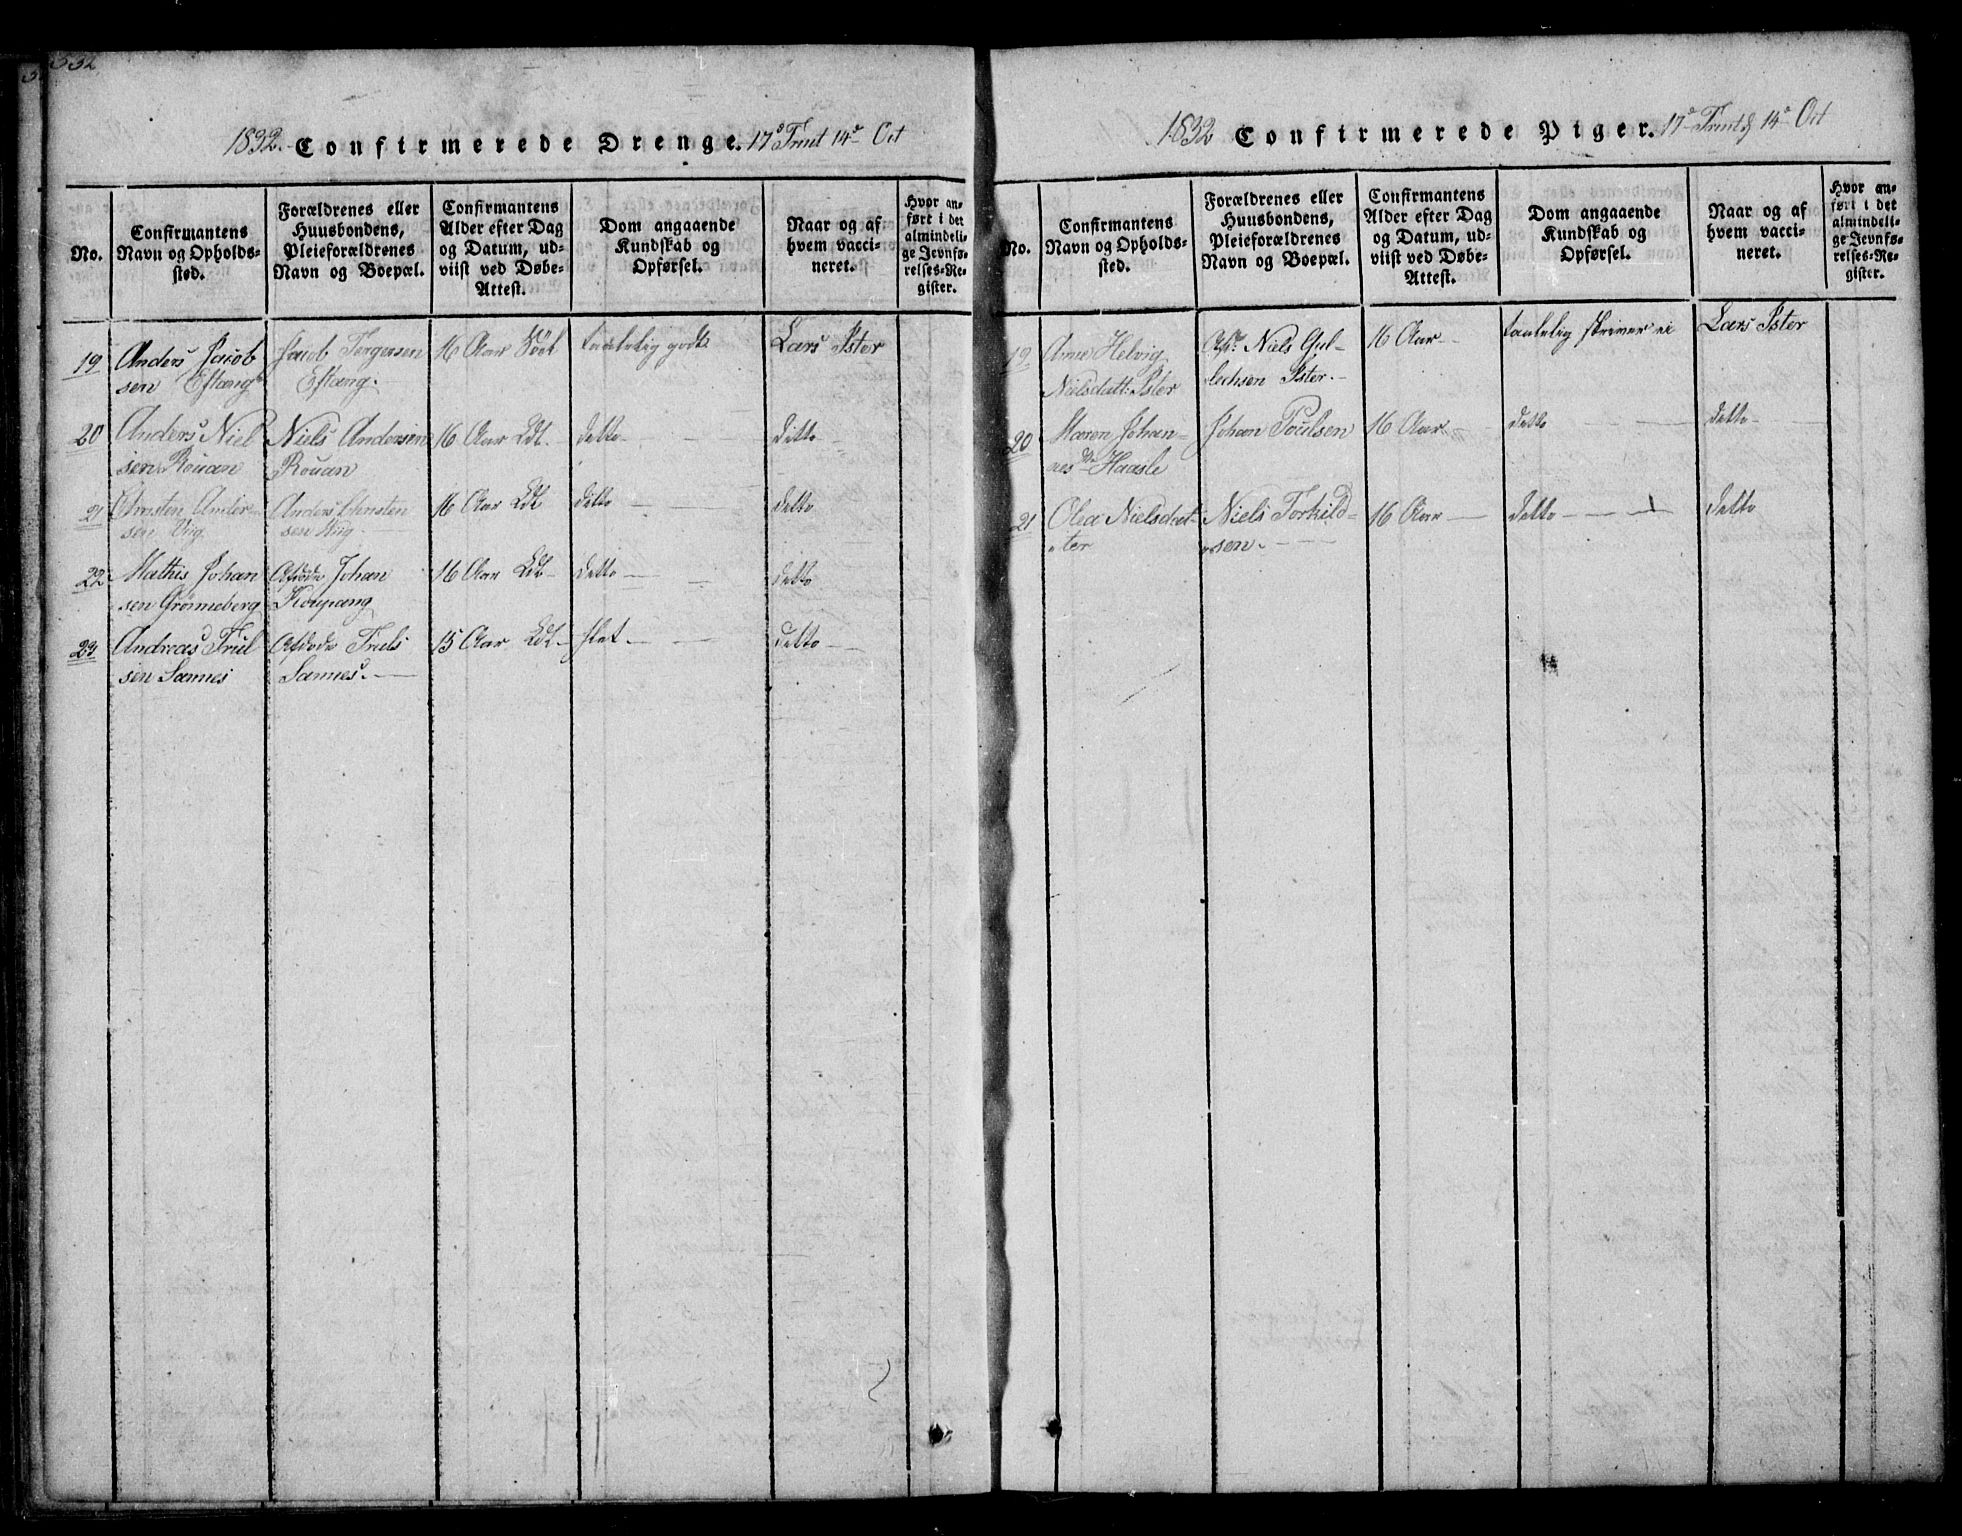 332
1832. Confirmerede Drenge. 17de Trint 14de Oct
No.
Confirmantens
Navn og Opholds-
sted.
Forældrenes eller
Huusbondens,
Pleieforældrenes
Navn og Boepæl.
Confirmantens
Alder efter Dag
og Datum, ud-
viist ved Døbe-
Attest.
Dom angaaende
Kundskab og
Opførsel.
Naar og af
hvem vacci-
neret.
Hvor an-
ført i det
almindeli-
ge Jevnfø-
relses-Re-
gister.
19
Anders Jacob
sen Eftang
Jacob Torgersen
Eftang.
16 Aar
taalelig godt
Lars Ister
20
Anders Niel
sen Rouan
Niels Andersen
Rouan
16 Aar Ldt.
detto
ditto
21
Christen Ander-
sen Viig
Anders Christen
sen Viig.
16 Aar Ldt
ditto
detto
22
Mathis Johan
sen Grönneberg
Afdöde Johan
Koupang
16 Aar Ldt
detto
detto
23
Andreas Trul
sen Sannes
Afdöde Truls
Sannes.
15 Aar Ldt
slet
detto
1832 Confirmerede Piger. 17de Trint. 14de Oct
No.
Confirmantens
Navn og Opholds-
sted.
Forældrenes eller
Huusbondens,
Pleieforældrenes
Navn og Boepæl.
Confirmantens
Alder efter Dag
og Datum, ud-
viist ved Døbe-
Attest.
Dom angaaende
Kundskab og
Opførsel.
Naar og af
hvem vacci-
neret.
Hvor an-
ført i det
almindeli-
ge Jevnfø-
relses-Re-
gister.
19
Anne Helvig
Nielsdatt: Ister
Niels Gul-
lechsen Ister.
16 Aar
taalelig skriver ei
Lars Ister
20
Maren Johan-
nesdtr Haasle
Johan Poulsen
16 Aar
detto
detto
21
Olea Nielsdat-
ter
Niels Torkild-
sen.
16 Aar
detto
detto